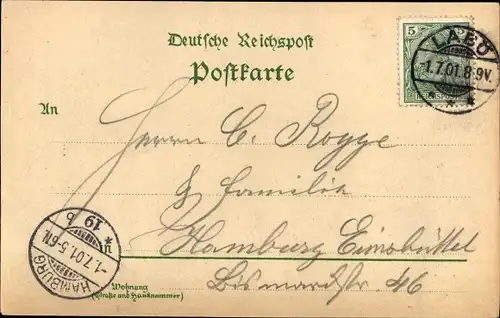 Deutsche Reichspost
Postkarte
5
LABÖ
-1.7.01.8-9V.
An
Herrn C. Rogge
& Familie
in
Hamburg Eimsbüttel
Bismarckstr. 46
Wohnung
(Straße und Hausnummer)
HAMBURG
-1.7.01.5-6N.
19 b